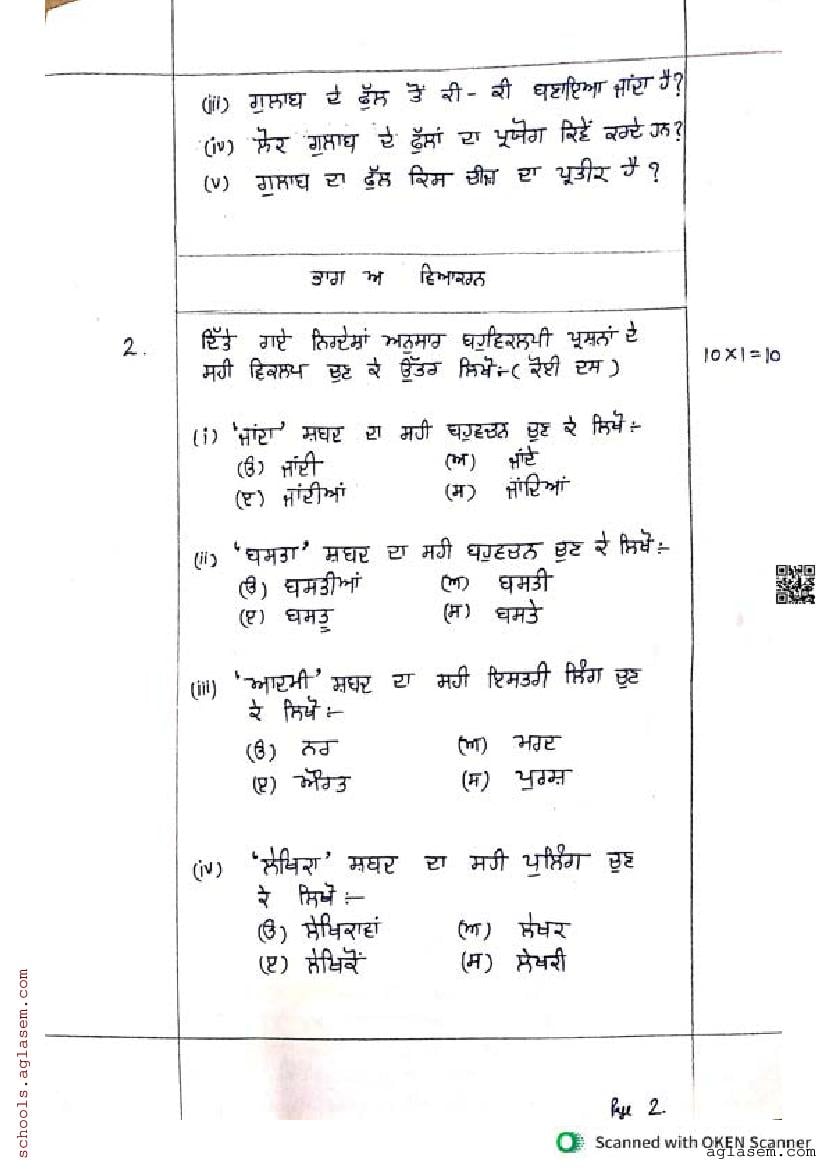 (iii) ਗੁਲਾਬ ਦੇ ਫੁੱਲ ਤੋਂ ਕੀ-ਕੀ ਬਣਾਇਆ ਜਾਂਦਾ ਹੈ?
(iv) ਲੋਕ ਗੁਲਾਬ ਦੇ ਫੁੱਲਾਂ ਦਾ ਪ੍ਰਯੋਗ ਕਿਵੇਂ ਕਰਦੇ ਹਨ?
(v) ਗੁਲਾਬ ਦਾ ਫੁੱਲ ਕਿਸ ਚੀਜ਼ ਦਾ ਪ੍ਰਤੀਕ ਹੈ?
ਭਾਗ ਅ ਵਿਆਕਰਨ
2. ਦਿੱਤੇ ਗਏ ਨਿਰਦੇਸ਼ਾਂ ਅਨੁਸਾਰ ਬਹੁਵਿਕਲਪੀ ਪ੍ਰਸ਼ਨਾਂ ਦੇ
ਸਹੀ ਵਿਕਲਪ ਚੁਣ ਕੇ ਉੱਤਰ ਲਿਖੋ:-(ਕੋਈ ਦਸ) 10×1=10
(i) 'ਜਾਂਦਾ' ਸ਼ਬਦ ਦਾ ਸਹੀ ਬਹੁਵਚਨ ਚੁਣ ਕੇ ਲਿਖੋ:-
(ੳ) ਜਾਂਦੀ (ਅ) ਜਾਂਦੇ
(ੲ) ਜਾਂਦੀਆਂ (ਸ) ਜਾਂਦਿਆਂ
(ii) 'ਬਸਤਾ' ਸ਼ਬਦ ਦਾ ਸਹੀ ਬਹੁਵਚਨ ਚੁਣ ਕੇ ਲਿਖੋ:-
(ੳ) ਬਸਤੀਆਂ (ਅ) ਬਸਤੀ
(ੲ) ਬਸਤੂ (ਸ) ਬਸਤੇ
(iii) 'ਆਦਮੀ' ਸ਼ਬਦ ਦਾ ਸਹੀ ਇਸਤਰੀ ਲਿੰਗ ਚੁਣ
ਕੇ ਲਿਖੋ:-
(ੳ) ਨਰ (ਅ) ਮਰਦ
(ੲ) ਔਰਤ (ਸ) ਪੁਰਸ਼
(iv) 'ਲੇਖਿਕਾ' ਸ਼ਬਦ ਦਾ ਸਹੀ ਪੁਲਿੰਗ ਚੁਣ
ਕੇ ਲਿਖੋ:-
(ੳ) ਲੇਖਿਕਾਵਾਂ (ਅ) ਲੇਖਕ
(ੲ) ਲੇਖਿਕੋਂ (ਸ) ਲੇਖਕੀ
Page 2.
Scanned with OKEN Scanner
aglasem.com
schools.aglasem.com